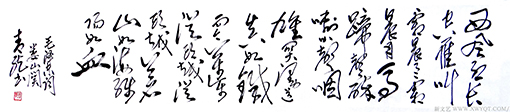 西风烈长
空雁叫
霜晨月霜
晨月马
蹄声碎
喇叭声咽
雄关漫道
真如铁
而今迈步
从头越从
头越苍
山如海残
阳如血
毛泽东词
娄山关